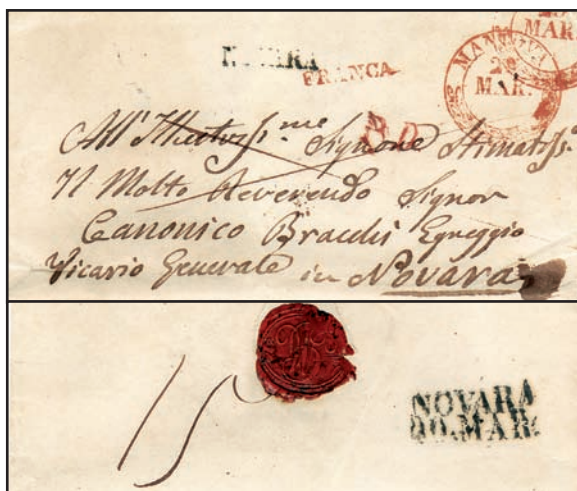 MAR.
NOVARA
FRANCA
MANTOVA
MAR.
All' Illustriss.me Signore Stimatiss.
Il Molto Reverendo Signor
Canonico Bracchi Egreggio
Vicario Generale in Novara
15
NOVARA
MAR.